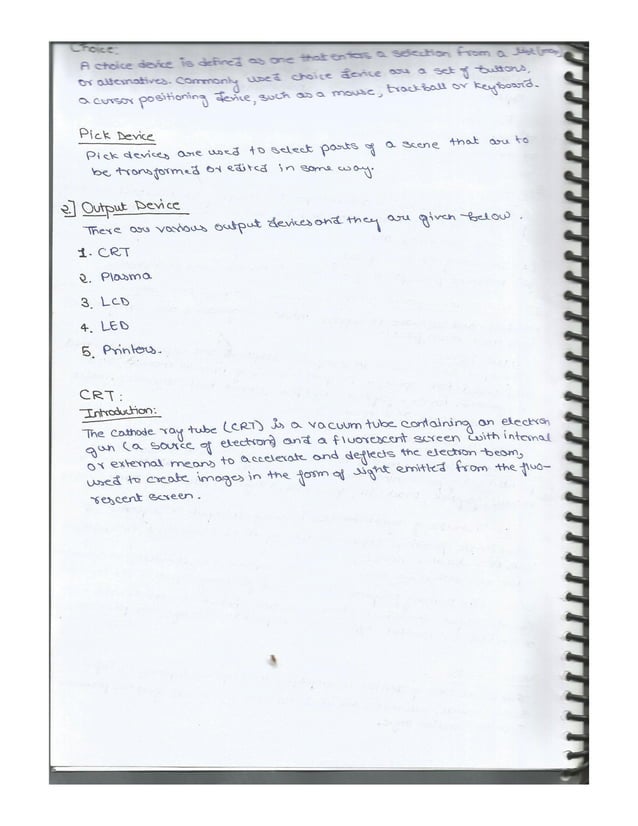 Choice:
A choice device is defined as one that enters a selection from a list (menu)
or alternatives. Commonly used choice device are a set of buttons,
a cursor positioning device, such as a mouse, trackball or keyboard.
Pick Device
Pick devices are used to select parts of a scene that are to
be transformed or edited in some way.
2.] Output Device
There are various output devices and they are given below.
1. CRT
2. Plasma
3. LCD
4. LED
5. Printers.
CRT:
Introduction:
The cathode ray tube (CRT) is a vacuum tube containing an electron
gun (a source of electron) and a fluorescent screen with internal
or external means to accelerate and deflects the electron beam,
used to create images in the form of light emitted from the fluo-
rescent screen.